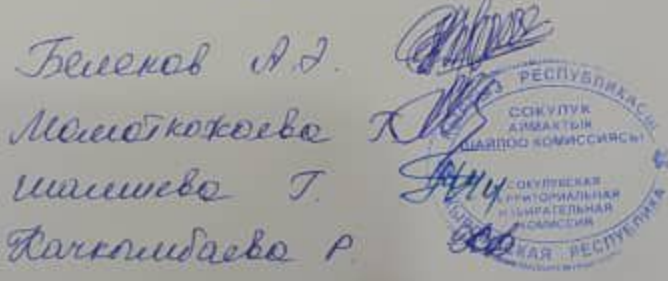 Беленов А.Э.
Маматкожоева Ж
Шамшиева Т.
Качкынбаева Р.
РЕСПУБЛИКАСЫ
СОКУЛУК
АЙМАКТЫК
ШАЙЛОО КОМИССИЯСЫ
СОКУЛУКСКАЯ
ТЕРРИТОРИАЛЬНАЯ
ИЗБИРАТЕЛЬНАЯ
КОМИССИЯ
РЕСПУБЛИКА